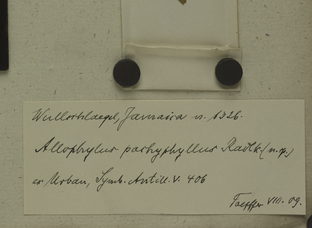 Wullschlaegel, Jamaica n. 1326.
Allophylus pachyphyllus Radlk. (n. sp.)
ex Urban, Symb. Antill. V. 406
Toepffer VIII. 09.